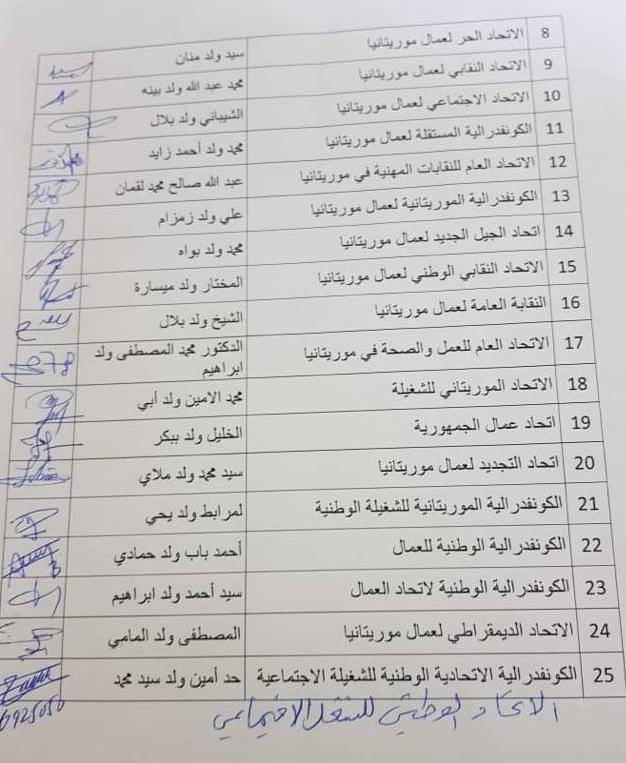 8 الاتحاد الحر لعمال موريتانيا سيد ولد منان
9 الاتحاد النقابي لعمال موريتانيا محمد عبد الله ولد بينه
10 الاتحاد الاجتماعي لعمال موريتانيا الشيباني ولد بلال
11 الكونفدرالية المستقلة لعمال موريتانيا محمد ولد أحمد زايد
12 الاتحاد العام للنقابات المهنية في موريتانيا عبد الله صالح محمد لقمان
13 الكونفدرالية الموريتانية لعمال موريتانيا علي ولد زمزام
14 اتحاد الجيل الجديد لعمال موريتانيا محمد ولد بواه
15 الاتحاد النقابي الوطني لعمال موريتانيا المختار ولد ميسارة
16 النقابة العامة لعمال موريتانيا الشيخ ولد بلال
17 الاتحاد العام للعمل والصحة في موريتانيا الدكتور محمد المصطفى ولد
ابراهيم
18 الاتحاد الموريتاني للشغيلة محمد الامين ولد أبي
19 اتحاد عمال الجمهورية الخليل ولد ببكر
20 اتحاد التجديد لعمال موريتانيا سيد محمد ولد ملاي
21 الكونفدرالية الموريتانية للشغيلة الوطنية لمرابط ولد يحي
22 الكونفدرالية الوطنية للعمال أحمد باب ولد حمادي
23 الكونفدرالية الوطنية لاتحاد العمال سيد أحمد ولد ابراهيم
24 الاتحاد الديمقراطي لعمال موريتانيا المصطفى ولد المامي
25 الكونفدرالية الاتحادية الوطنية للشغيلة الاجتماعية حد أمين ولد سيد محمد
الاتحاد الوطني للشغل الاجتماعي